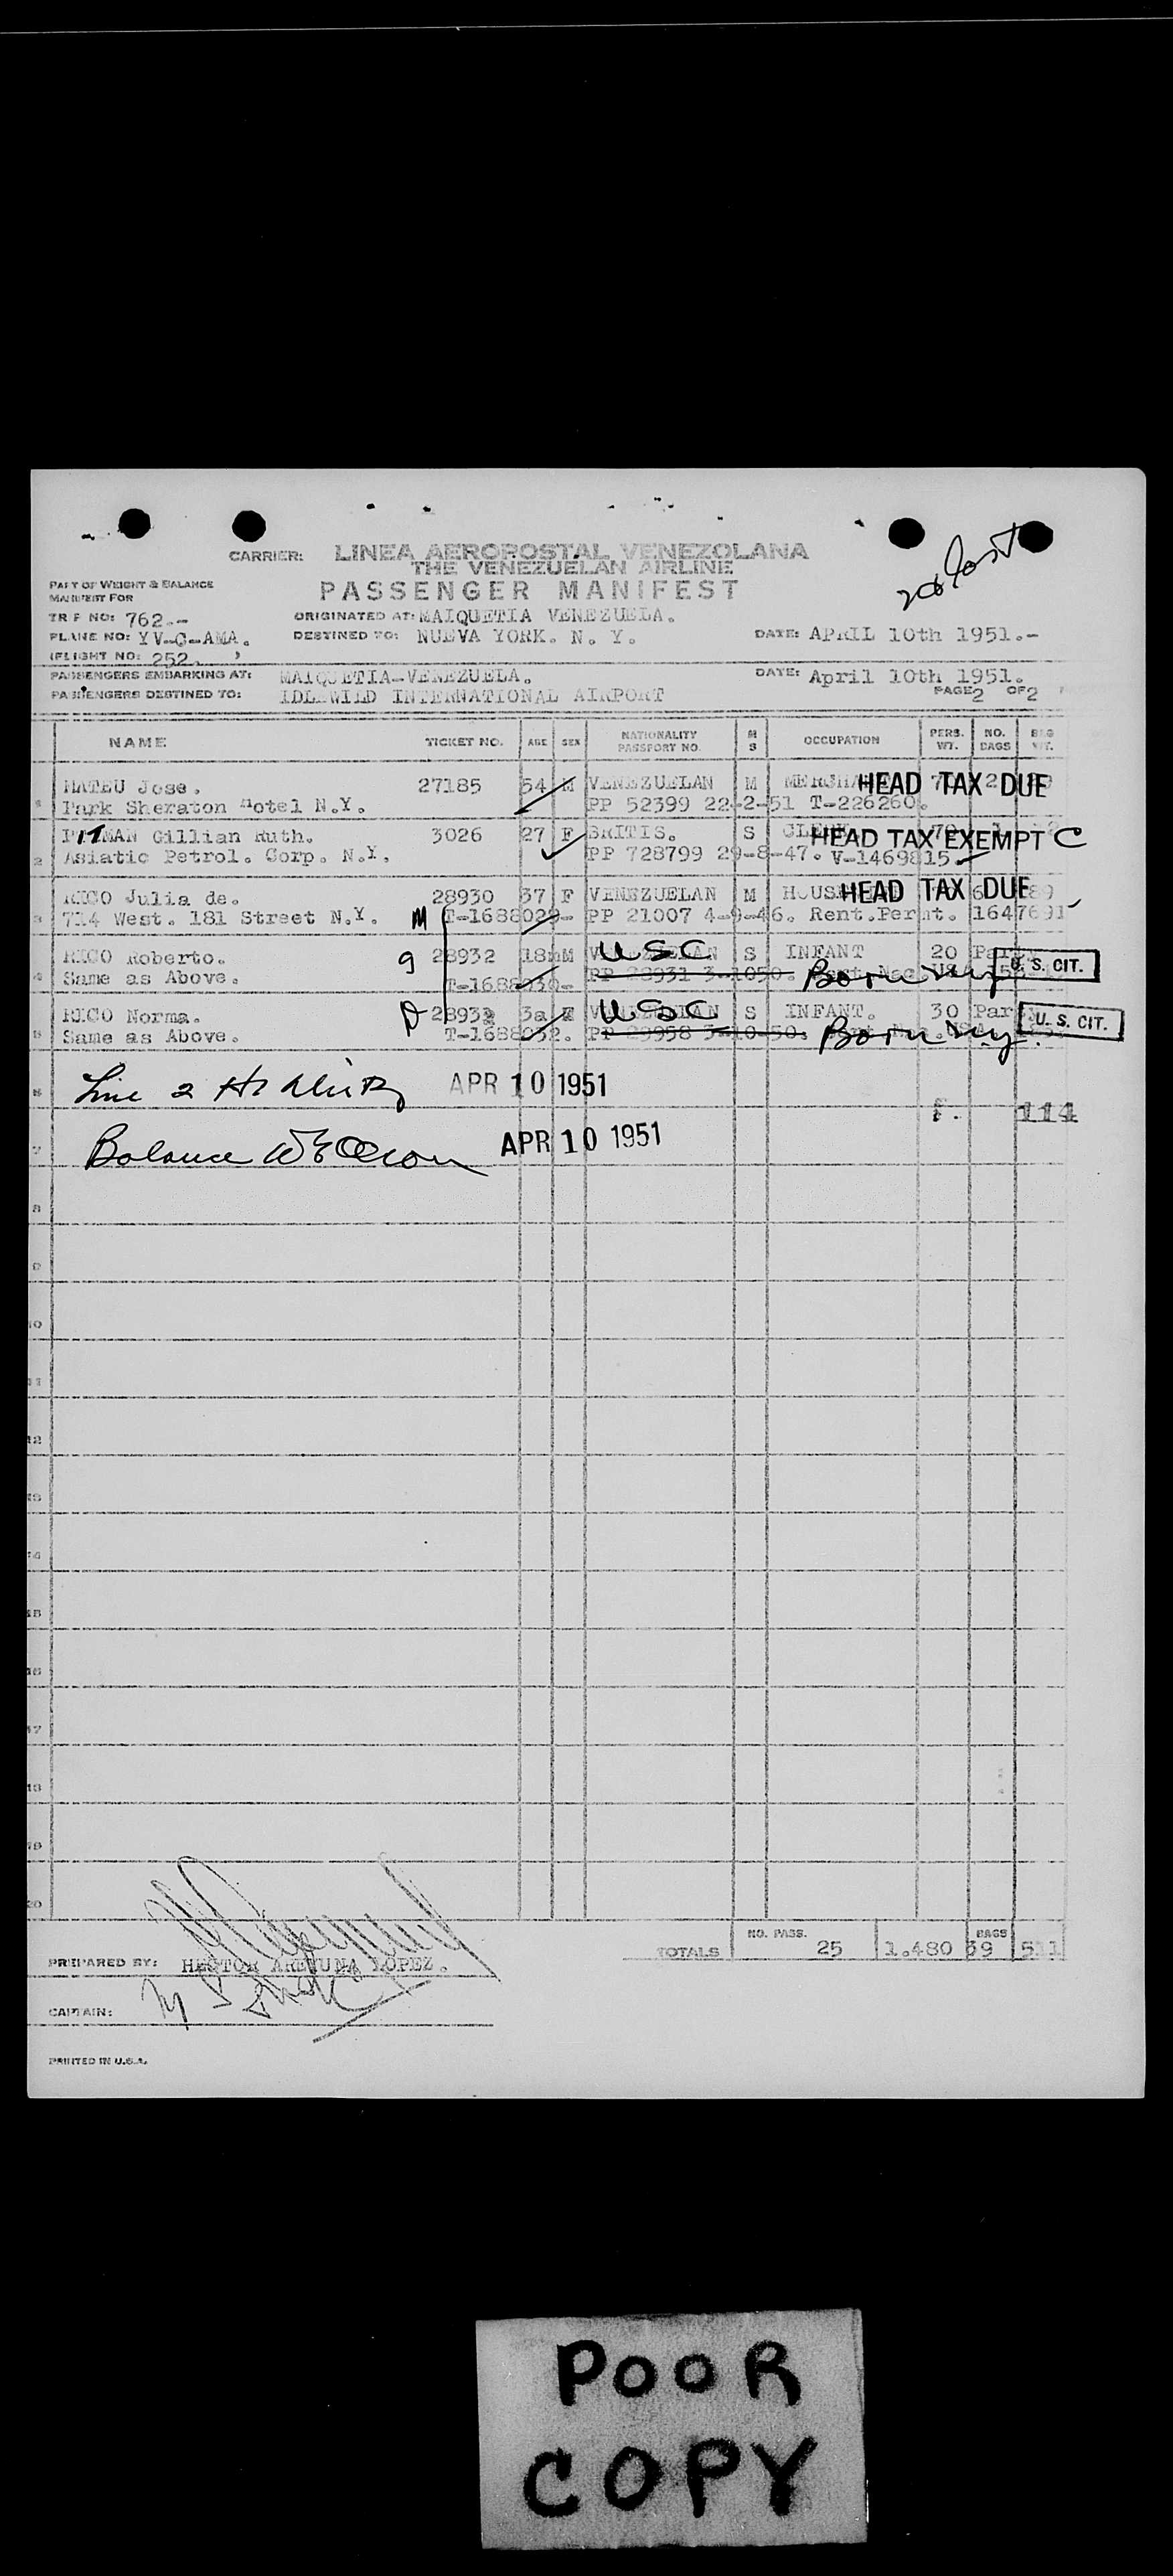 CARRIER: LINEA AEROPOSTAL VENEZOLANA
THE VENEZUELAN AIRLINE
PART OF WEIGHT & BALANCE
MANIFEST FOR
PASSENGER MANIFEST
TRIP NO: 762.-
ORIGINATED AT: MAIQUETIA VENEZUELA.
PLANE NO: YV-C-AMA.
DESTINED TO: NUEVA YORK. N. Y.
DATE: APRIL 10th 1951.-
(FLIGHT NO: 252. )
PASSENGERS EMBARKING AT: MAIQUETIA-VENEZUELA.
DATE: April 10th 1951.
PASSENGERS DESTINED TO: IDLEWILD INTERNATIONAL AIRPORT
PAGE 2 OF 2
NAME TICKET NO. AGE SEX NATIONALITY PASSPORT NO. M S OCCUPATION PERS. WT. NO. BAGS BAG WT.
MATEU Jose. 27185 54 M VENEZUELAN M HEAD TAX DUE
1 Park Sheraton Hotel N.Y. PP 52399 22-2-51 T-226260.
PITMAN Gillian Ruth. 3026 27 F BRITIS. S HEAD TAX EXEMPT C
2 Asiatic Petrol. Corp. N.Y. PP 728799 29-8-47. V-1469815.
RICO Julia de. 28930 37 F VENEZUELAN M HEAD TAX DUE
3 714 West. 181 Street N.Y. M T-1688029- PP 21007 4-9-46. Rent.Permt. 1647691
RICO Roberto. 9 28932 18m M USC S INFANT 20 Par
4 Same as Above. T-1688030- Born NY U. S. CIT.
RICO Norma. D 28933 3a F USC S INFANT. 30 Par
5 Same as Above. T-1688032. Born NY U. S. CIT.
6 Line 2 APR 10 1951
114
7 Balance APR 10 1951
8
9
10
11
12
13
14
15
16
17
18
19
20
TOTALS NO. PASS. 25 1.480 BAGS 39 511
PREPARED BY: HECTOR LOPEZ.
CAPTAIN:
PRINTED IN U.S.A.
POOR
COPY